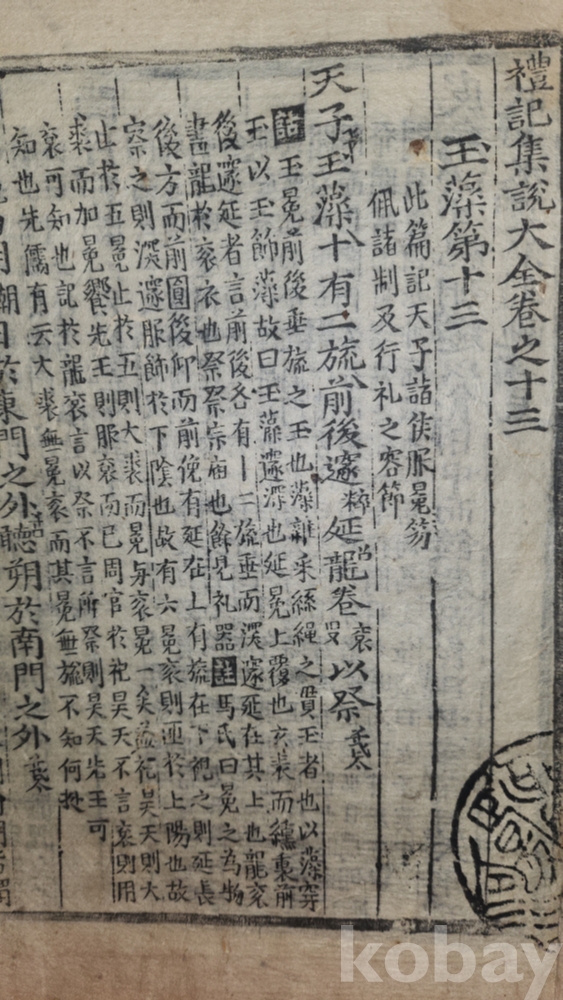 禮記集說大全卷之十三
玉藻第十三
此篇記天子諸侯服冕笏
佩諸制及行礼之容節
天子玉藻十有二旒前後邃延龍卷以祭
註玉冕前後垂旒之玉也藻雜采絲繩之貫玉者也以藻穿
玉以玉飾藻故曰玉藻邃深也延冕上覆也玄表而纁裏前
後邃延者言前後各有十二旒垂而深邃延在其上也龍袞
畫龍於袞衣也祭祭宗庙也餘見礼器註馬氏曰冕之為物
後方而前圓後仰而前俛有延在上有旒在下視之則延長
察之則深邃服飾於下陰也故有六冕袞則運於上陽也故
止於五冕止於五則大裘而冕与袞冕一矣盖祀昊天則大
裘而加冕饗先王則服袞而已周官於祀昊天不言袞則用
袞可知也記於龍袞言以祭不言所祭則昊天先王可
知也先儒有云大裘無冕袞而其冕無旒不知何拠
朝日於東門之外聽朔於南門之外
kobay